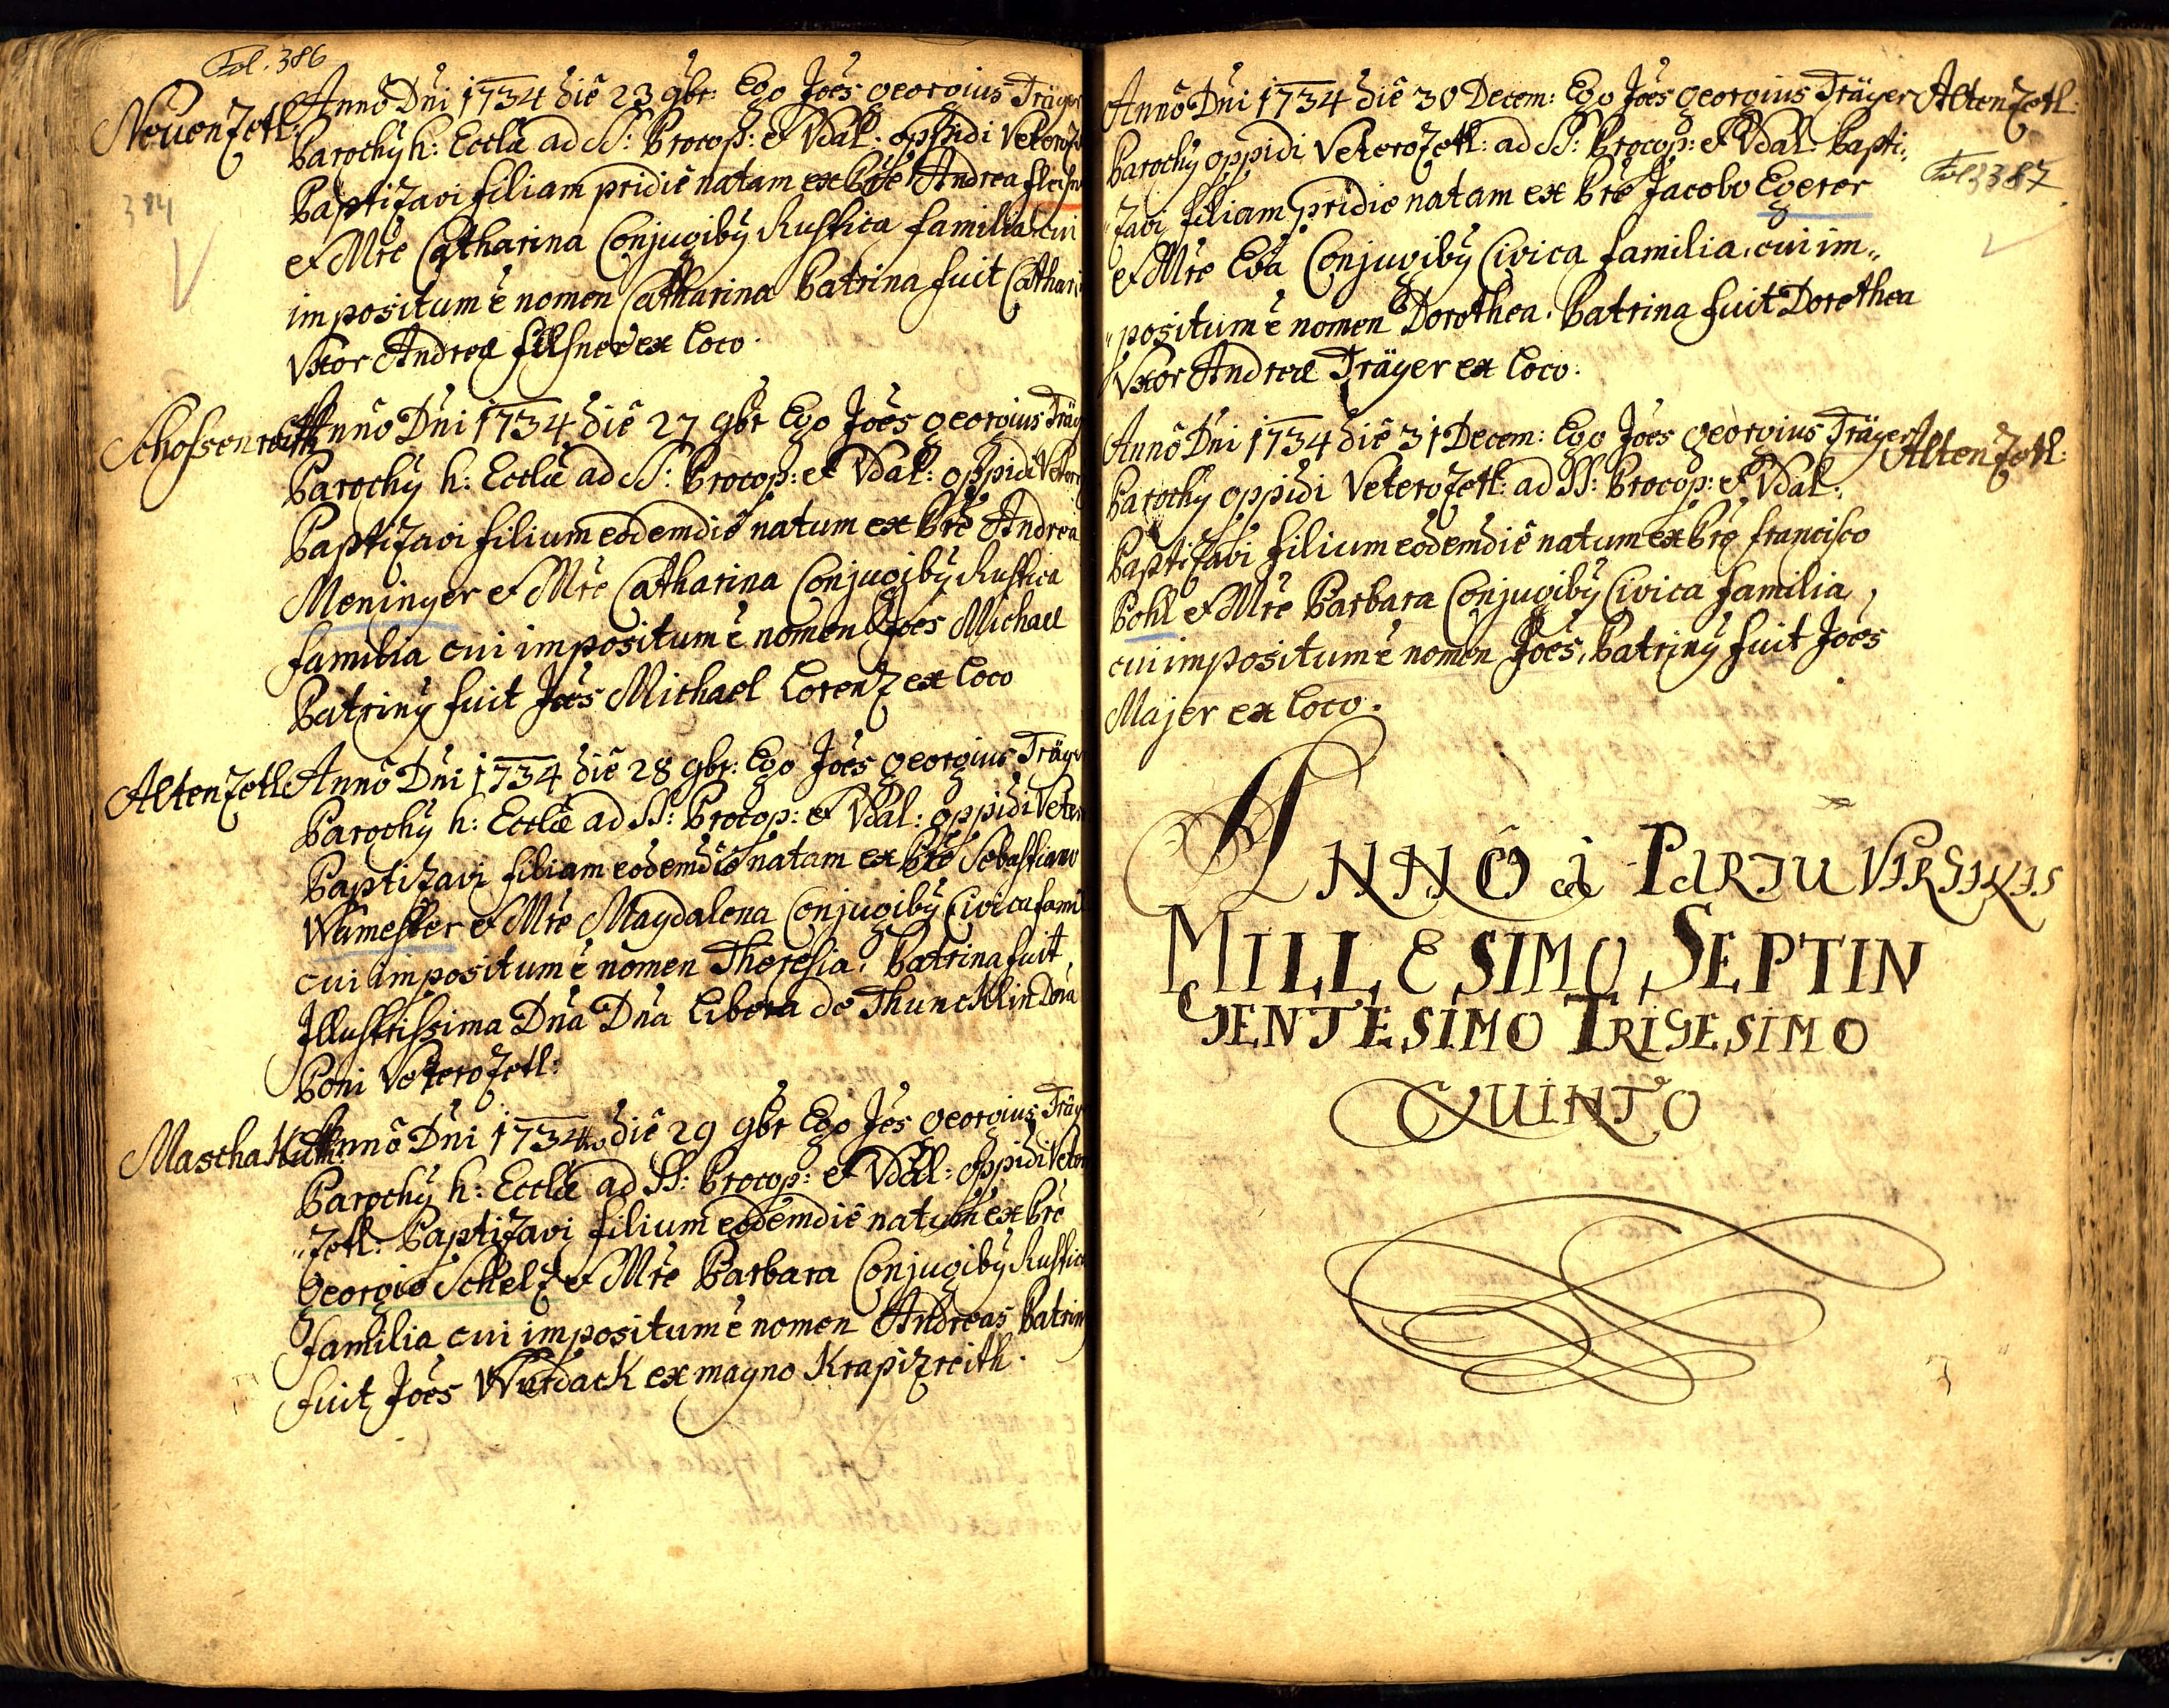 Fol. 386
NeuenZetl:
Anno Dni 1734 die 23 9br: Ego Joes Georgius Träger
Parochy h: Eccliæ ad SS: Procop: & Vdal: oppidi VeteroZ
Baptizavi filiam pridie natam ex Pre Andrea fleisn
& Mre Catharina Conjugiby Rustica familia cui
impositum e nomen Catharina Patrina fuit Cathari
Vxor Andreæ filsner ex loco.
384
Schossenreith
Anno Dni 1734 die 27 9br Ego Joes Georgius Träg
Parochy h: Eccliæ ad SS: Procop: & Vdal: oppidi Vetero
Baptizavi filium eodem die natum ex Pre Andrea
Meninger & Mre Catharina Conjugiby Rustica
familia cui impositum e nomen Joes Michael
Patriny fuit Joes Michael Lorenz ex loco
AltenZetl:
Anno Dni 1734 die 28 9br: Ego Joes Georgius Träge
Parochy h: Eccliæ ad SS: Procop: & Vdal: oppidi Veter
Baptizavi filiam eodem die natam ex Pre Sebastiano
Wamesser & Mre Magdalena Conjugiby Civica famil
cui impositum e nomen Theresia. Patrina fuit
Illustrissima Dna Dna Libera de Thuncklin Dona
Boni VeteroZetl:
MaschaKuth:
Anno Dni 1734 die 29 9br Ego Joes Georgius Träg
Parochy h: Eccliæ ad SS: Procop: & Vdal: oppidi Vetero
"Zetl: Baptizavi filium eodem die natum ex Pre
Georgio Schelz & Mre Barbara Conjugiby Rustica
familia cui impositum e nomen Andreas Patrin
fuit Joes Wurdack ex magno Krapizreith.
Anno Dni 1734 die 30 Decem: Ego Joes Georgius Träger AltenZetl:
Parochy oppidi VeteroZetl: ad SS: Procop: & Vdal: Bapti„
Fol 387
"zavi filiam pridie natam ex Pre Jacobo Egerer
& Mre Eva Conjugiby Civica familia, cui im„
"positum e nomen Dorothea. Patrina fuit Dorothea
Vxor Andreæ Träger ex loco.
Anno Dni 1734 die 31 Decem: Ego Joes Georgius Träger AltenZetl:
Parochy oppidi VeteroZetl: ad SS: Procop: & Vdal:
Baptizavi filium eodem die natum ex Pre Francisco
Pohl & Mre Barbara Conjugiby Civica familia,
cui impositum e nomen Joes, Patriny fuit Joes
Majer ex loco.
ANNO à PARTU VIRGINIS
MILLESIMO SEPTIN
GENTESIMO TRIGESIMO
QUINTO